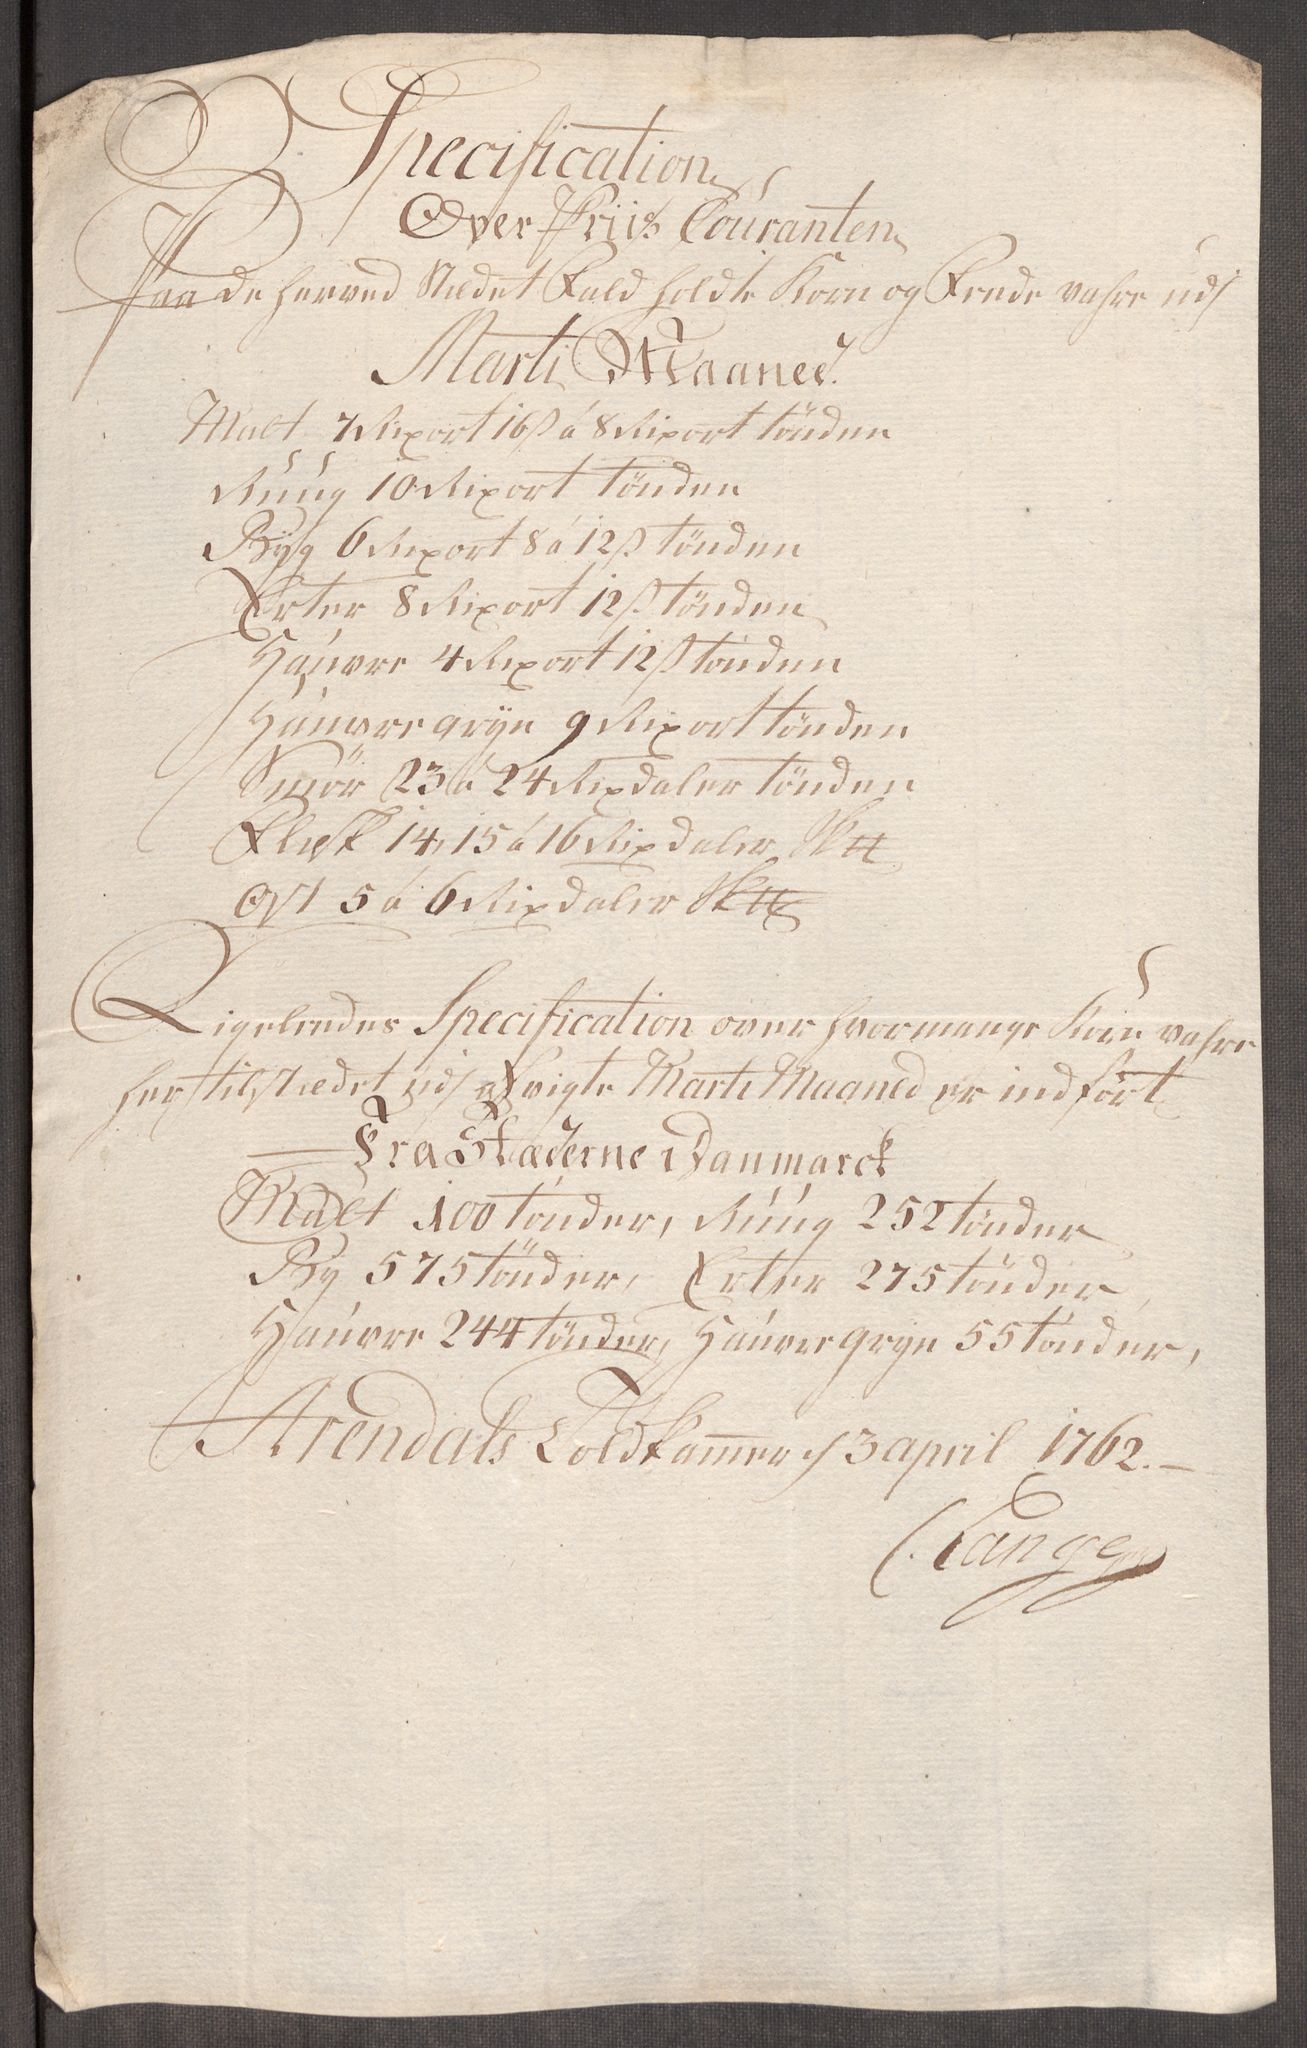 Specification
Over Priis Couranten
Paa de herved Stædet Fald holdte Korn og Fede vahre udj
Marti Maaned.
Malt 7 Rixort 16 ß á 8 Rixort tönden
Rúúg 10 Rixort tönden
Byg 6 Rixort 8 á 12 ß tönden
Erter 8 Rixort 12 ß tönden
Haúvre 4 Rixort 12 ß tönden
Haúvregryn 9 Rixort tönden
Smör 23 á 24 Rixdaler tönden
Flesk 14, 15 á 16 Rixdaler Sk℔
Ost 5 á 6 Rixdaler Sk℔
Ligeleedes Specification over hvormange Korn vahre
her til Stædet udj Afvigte Marti Maaned er indfört
Fra Stæderne i Danmarck
Malt 100 tönder, Rúúg 252 tönder
By 575 tönder, Erter 275 tönder,
Haúvre 244 tönder, Haúvregryn 55 tönder,
Arendals Toldkammer d 3 april 1762.
C. Lange